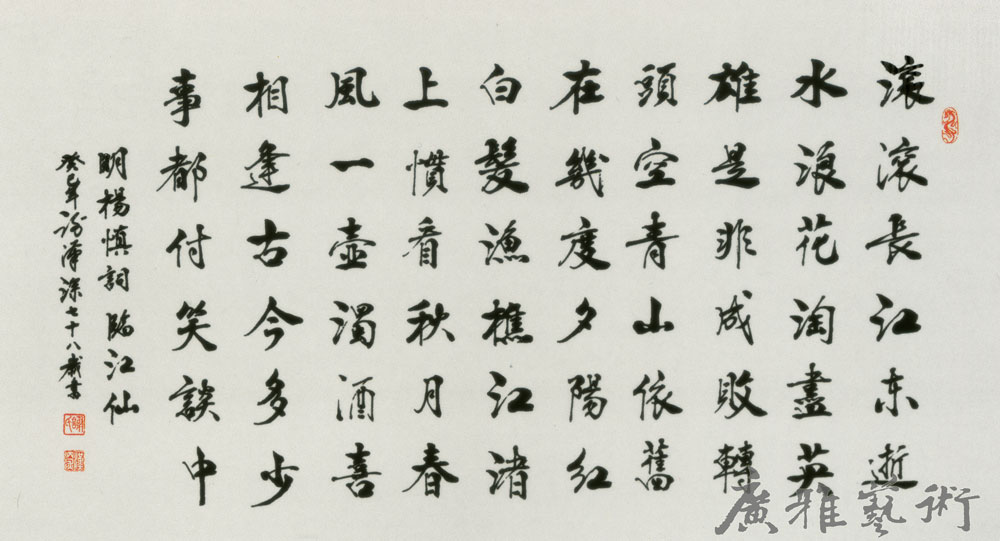 滾滾長江东逝
水浪花淘盡英
雄是非成敗轉
頭空青山依舊
在幾度夕陽红
白髮漁樵江渚
上慣看秋月春
風一壺濁酒喜
相逢古今多少
事都付笑談中
明楊慎詞臨江仙
癸 七十八歲書
廣雅藝術